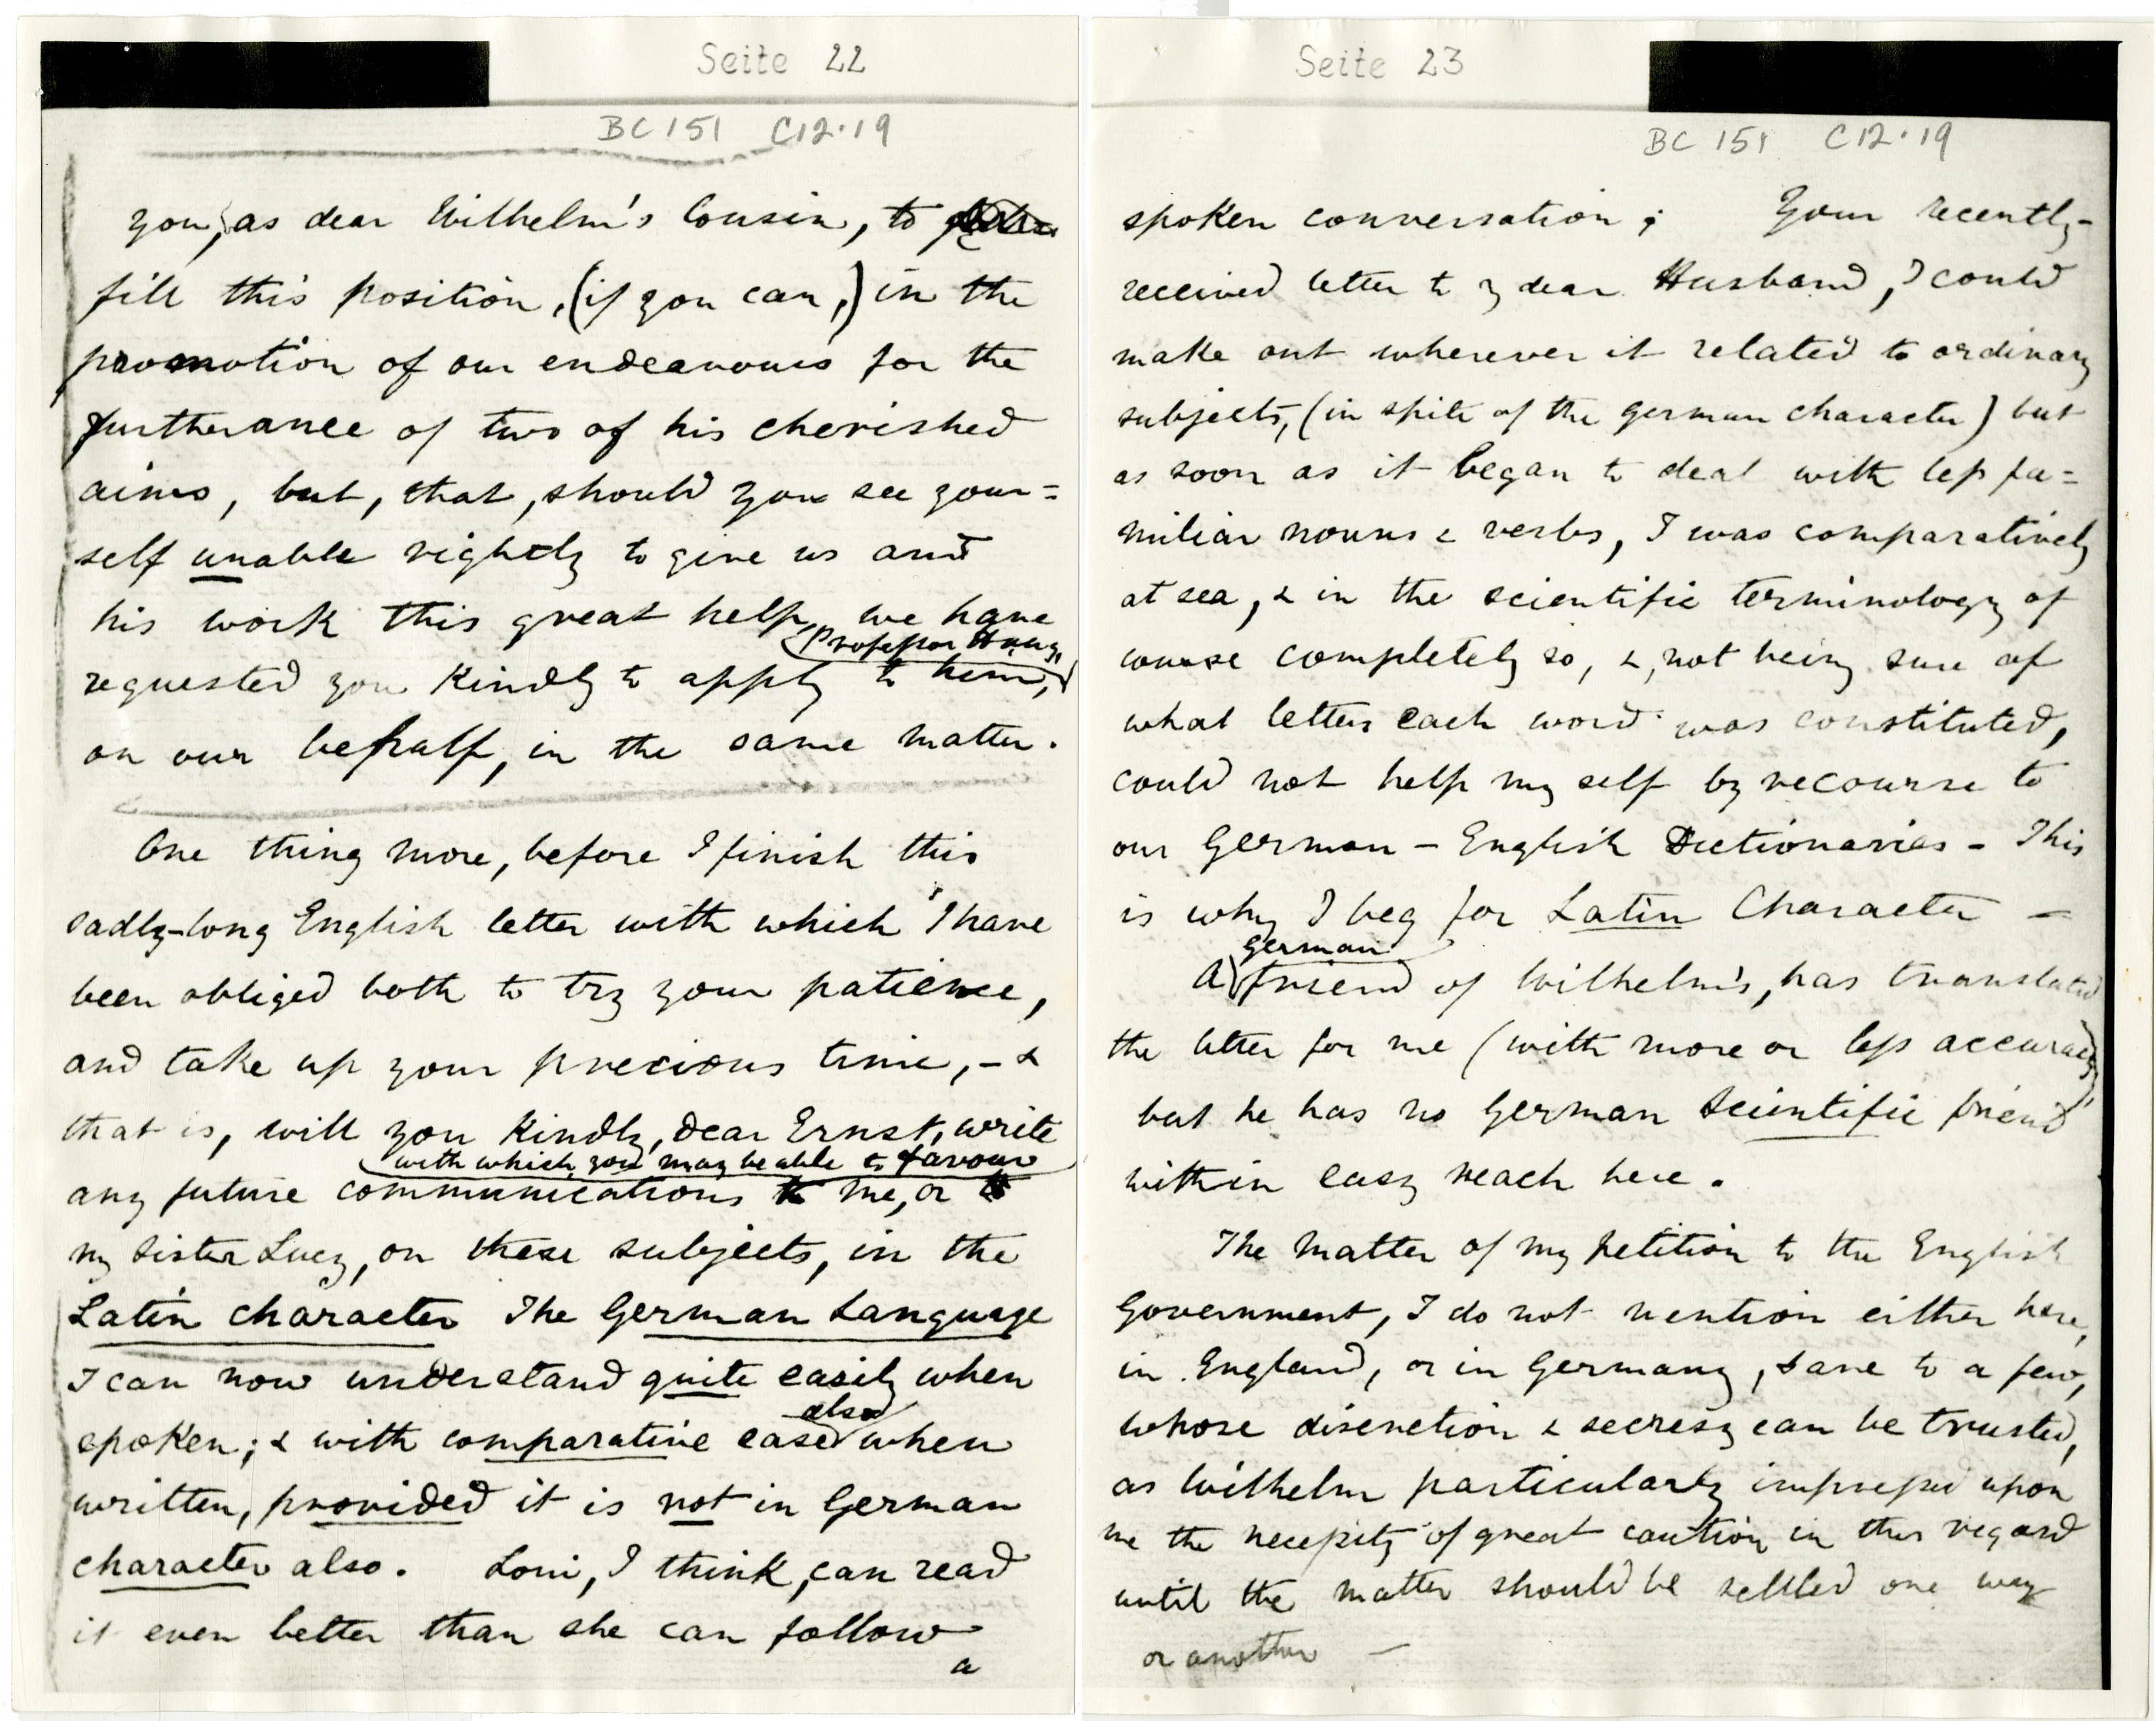 Seite 22
BC 151 C12.19
you, as dear Wilhelm's Cousin, to
fill this position, (if you can,) in the
promotion of our endeavours for the
furtherance of two of his cherished
aims, but, that, should you see your=
self unable rightly to give us and
his work this great help, we have
Professor Haug,
requested you Kindly to apply to him,
on our behalf, in the same matter.
One thing more, before I finish this
sadly-long English letter with which I have
been obliged both to try your patience,
and take up your precious time, - &
that is, will you Kindly, dear Ernst, write
with which you may be able to favour
any future communications me, or
my Sister Lucy, on these subjects, in the
Latin character The German Language
I can now understand quite easily when
also
spoken; & with comparative ease when
written, provided it is not in German
character also. Loui, I think, can read
it even better than she can follow
a
Seite 23
BC 151 C12.19
spoken conversation; Your recently-
received letter to my dear Husband, I could
make out wherever it related to ordinary
subjects, (in spite of the German character) but
as soon as it began to deal with less fa=
miliar nouns & verbs, I was comparatively
at sea, & in the scientific terminology of
course completely so, &, not being sure of
what letters each word was constituted,
could not help my self by recourse to
our German - English Dictionaries - This
is why I beg for Latin Character -
German
A friend of Wilhelm's, has translated
the letter for me (with more or less accuracy)
but he has no German Scientific friend
within easy reach here.
The matter of my petition to the English
Government, I do not mention either here,
in England, or in Germany, save to a few,
whose discretion & secresy can be trusted,
as Wilhelm particularly impressed upon
me the necessity of great caution in this regard
until the matter should be settled one way
or another -